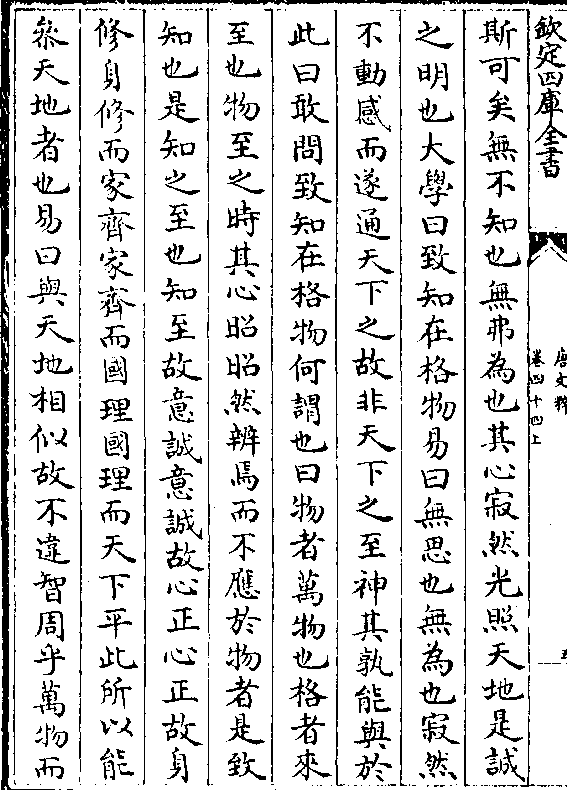 欽定四庫全書
唐文粹
卷四十四上
五
斯可矣無不知也無弗為也其心寂然光照天地是誠
之明也大學曰致知在格物易曰無思也無為也寂然
不動感而遂通天下之故非天下之至神其孰能與於
此曰敢問致知在格物何謂也曰物者萬物也格者來
至也物至之時其心昭昭然辨焉而不應於物者是致
知也是知之至也知至故意誠意誠故心正心正故身
修身修而家齊家齊而國理國理而天下平此所以能
叅天地者也易曰與天地相似故不違智周乎萬物而